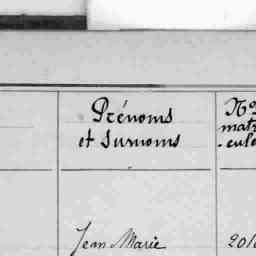 Prénoms
et Surnoms
No
mat
-cul
Jean Marie
20